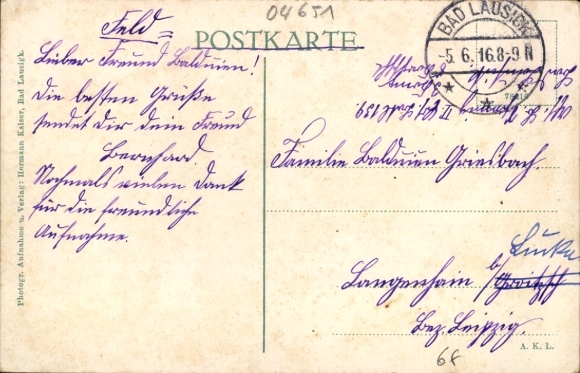 04651
Feld=
POSTKARTE
Lieber Freund Balduien!
Die besten Grüße
sendet dir dein Freund
Bernhard
Nochmals vielen Dank
für die freundliche
Aufnahme.
Photogr. Aufnahme u. Verlag: Hermann Kaiser, Bad Lausigk.
BAD LAUSIGK
-5.6.16.8-9N
Familie Balduien Griesbach.
Langenhain b/ Groitzsch
Bez. Leipzig.
A. K. L.